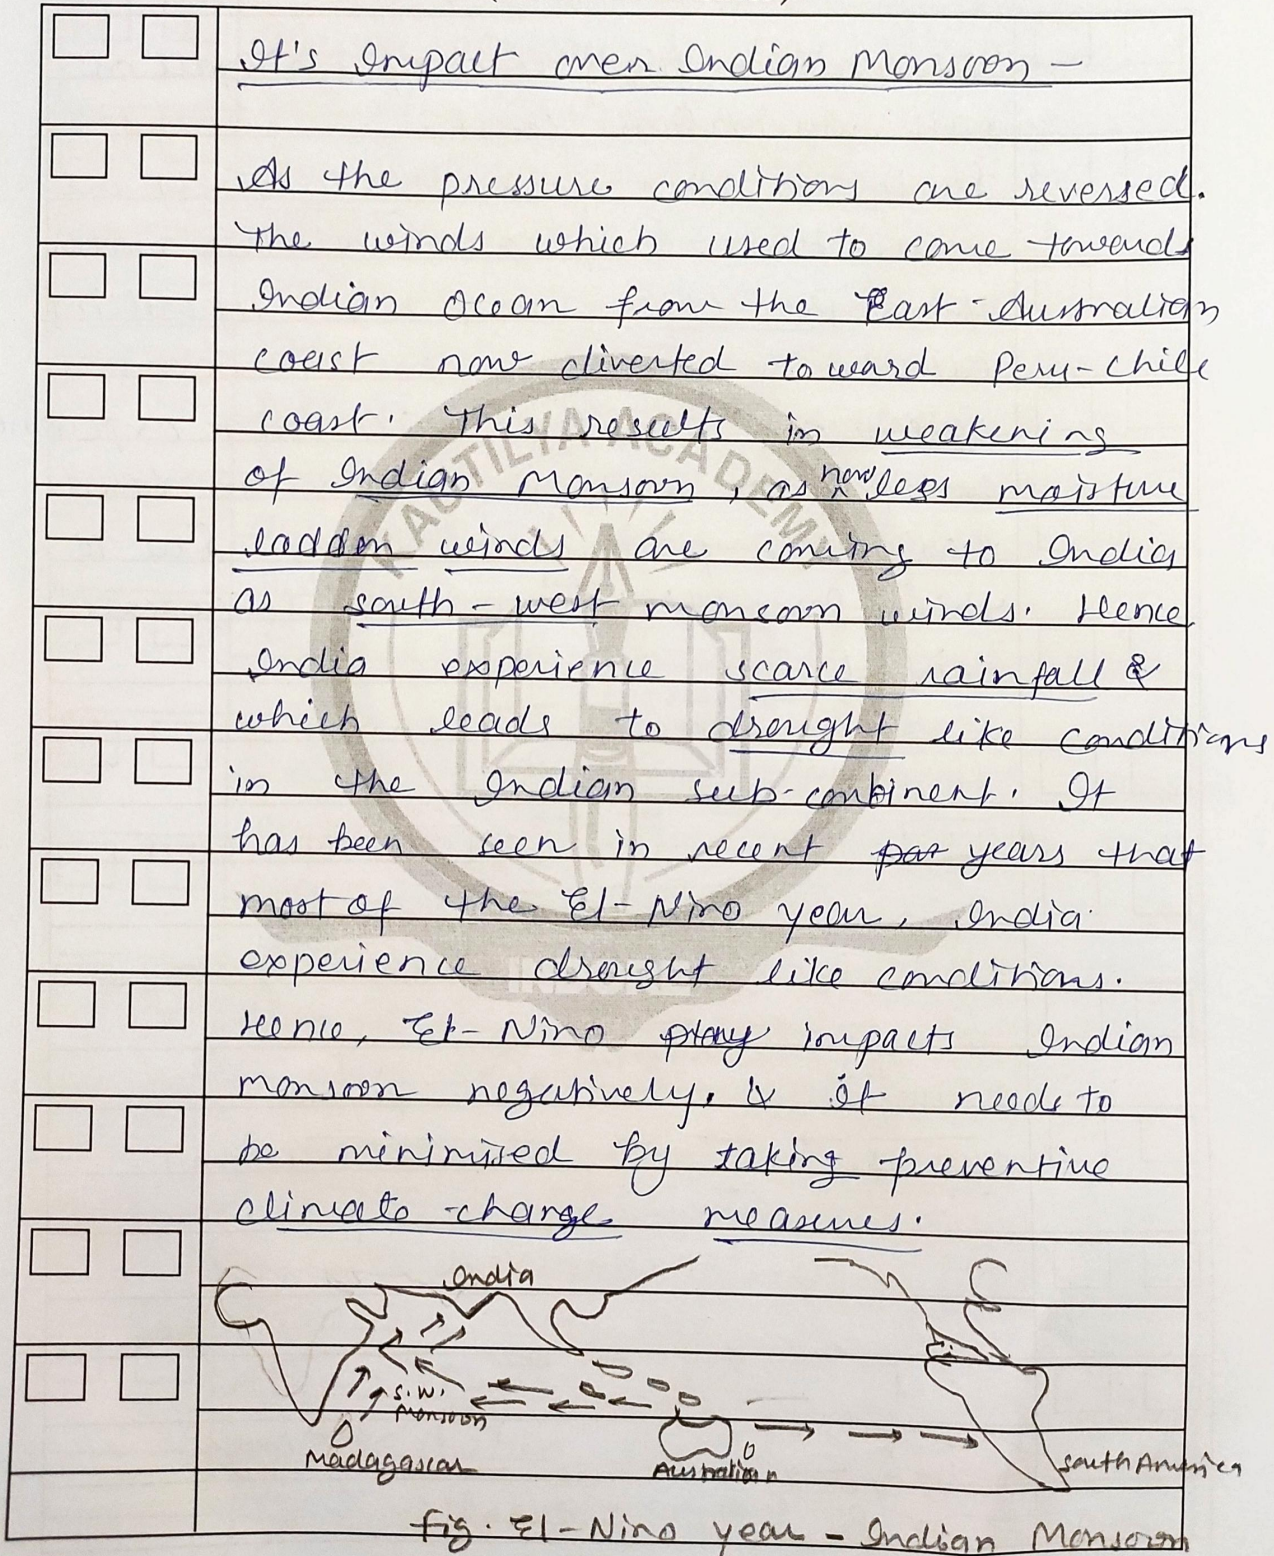 It's Impact over Indian Monsoon -
As the pressure conditions are reversed.
The winds which used to come towards
Indian Ocean from the East-Australian
coast now diverted toward Peru-Chile
coast. This results in weakening
of Indian Monsoon, as now less moisture
ladden winds are coming to India
as south-west monsoon winds. Hence
India experience scarce rainfall &
which leads to drought like conditions
in the Indian sub-continent. It
has been seen in recent years that
most of the El-Nino year, India
experience drought like conditions.
Hence, El-Nino play impacts Indian
monsoon negatively. & it needs to
be minimised by taking preventive
climate-change measures.
India
S.W.
Monsoon
Madagascar
Australian
South America
fig. El-Nino year - Indian Monsoon
KAUTILYA ACADEMY